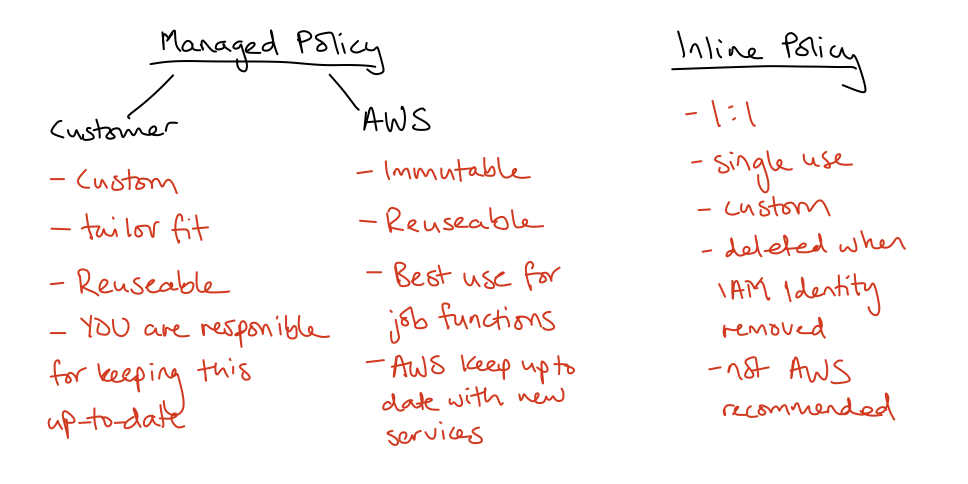 Managed Policy
Customer
- Custom
- tailor fit
- Reuseable
- YOU are responible
for keeping this
up-to-date
AWS
- Immutable
- Reuseable
- Best use for
job functions
- AWS keep up to
date with new
services
Inline Policy
- 1:1
- single use
- custom
- deleted when
IAM Identity
removed
- not AWS
recommended